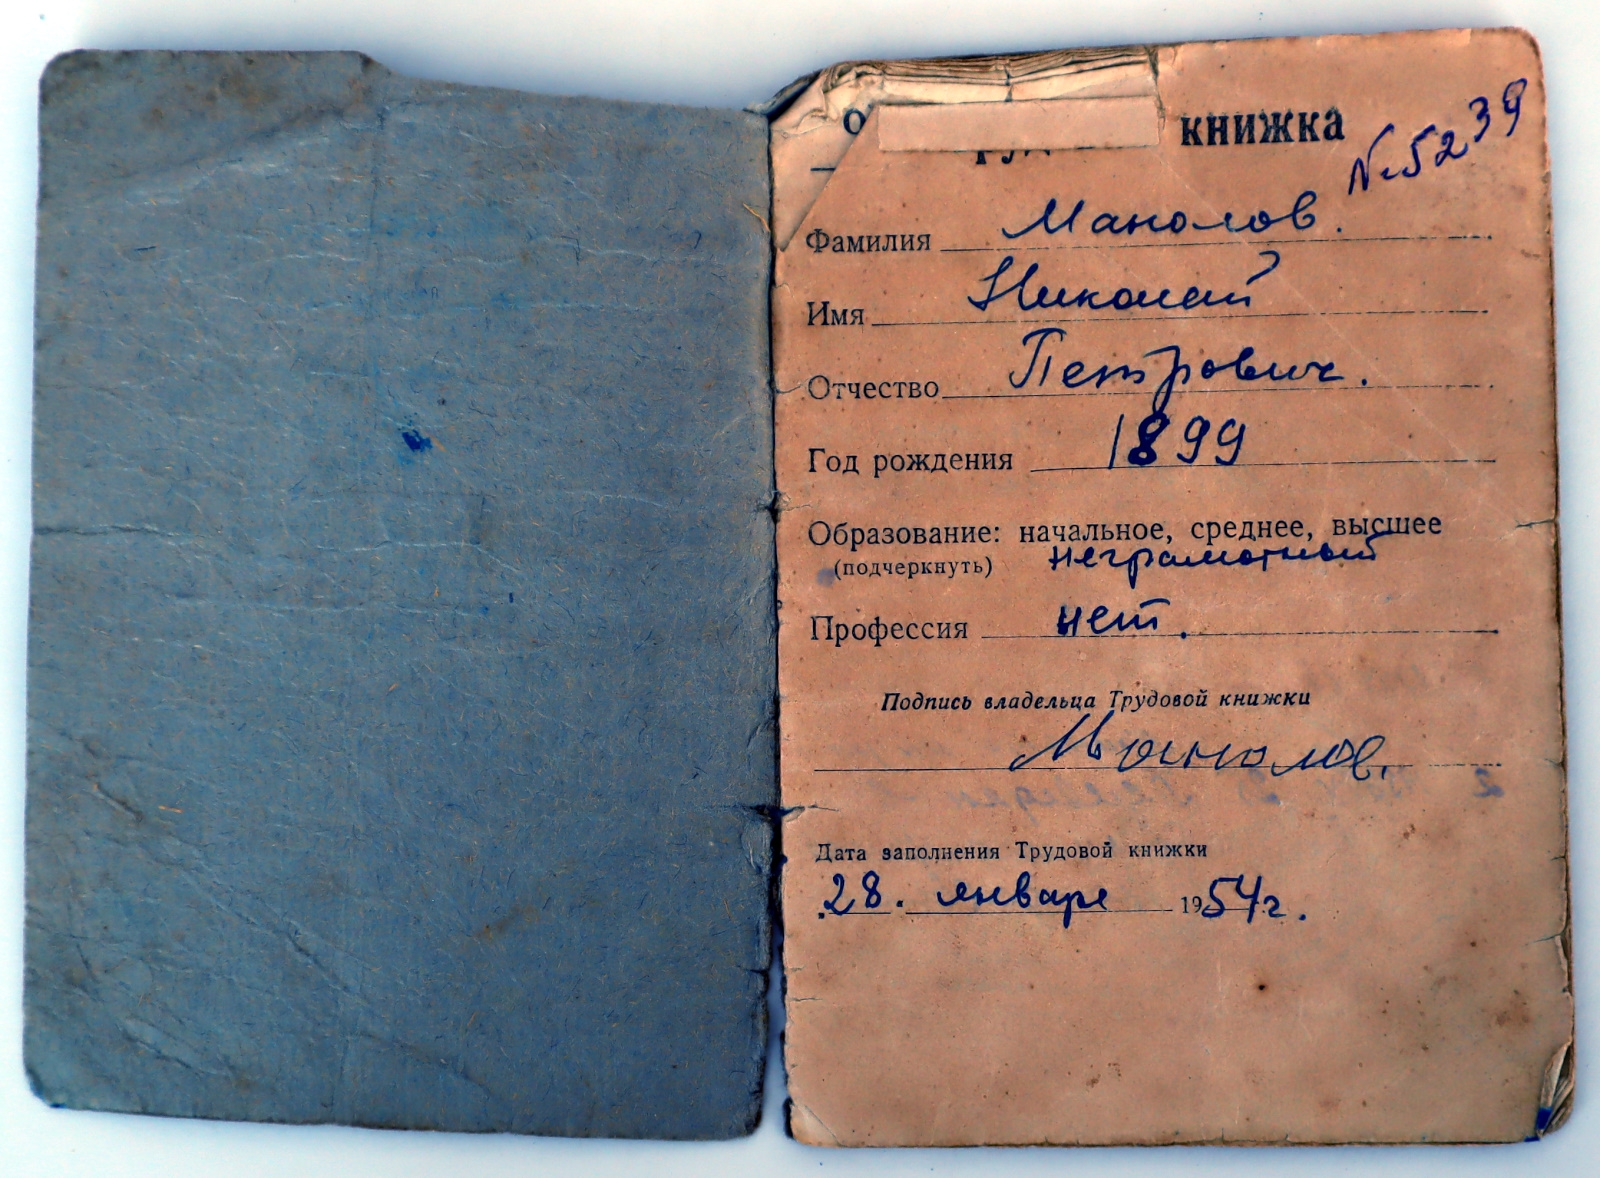 книжка
№ 5239
Фамилия Манолов.
Имя Николай
Отчество Петрович.
Год рождения 1899
Образование: начальное, среднее, высшее
(подчеркнуть) неграмотный
Профессия нет.
Подпись владельца Трудовой книжки
Манолов.
Дата заполнения Трудовой книжки
28. января 1954 г.